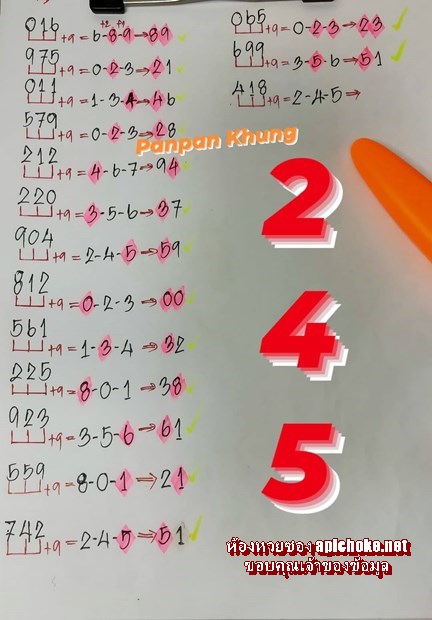 016 +2 +9
+9 = 6-8-9 → 89
975
+9 = 0-2-3 → 21
011
+9 = 1-3-4 → 46
579
+9 = 0-2-3 → 28
212
+9 = 4-6-7 → 94
220
+9 = 3-5-6 → 37
904
+9 = 2-4-5 → 59
812
+9 = 0-2-3 → 00
561
+9 = 1-3-4 ⇒ 32
225
+9 = 8-0-1 ⇒ 38
923
+9 = 3-5-6 → 61
559
+9 = 8-0-1 ⇒ 21
742
+9 = 2-4-5 ⇒ 51
065
+9 = 0-2-3 → 23
699
+9 = 3-5-6 → 51
418
+9 = 2-4-5 ⇒
Panpan Khung
2
4
5
ห้องหวยซอง apichoke.net
ขอบคุณเจ้าของข้อมูล